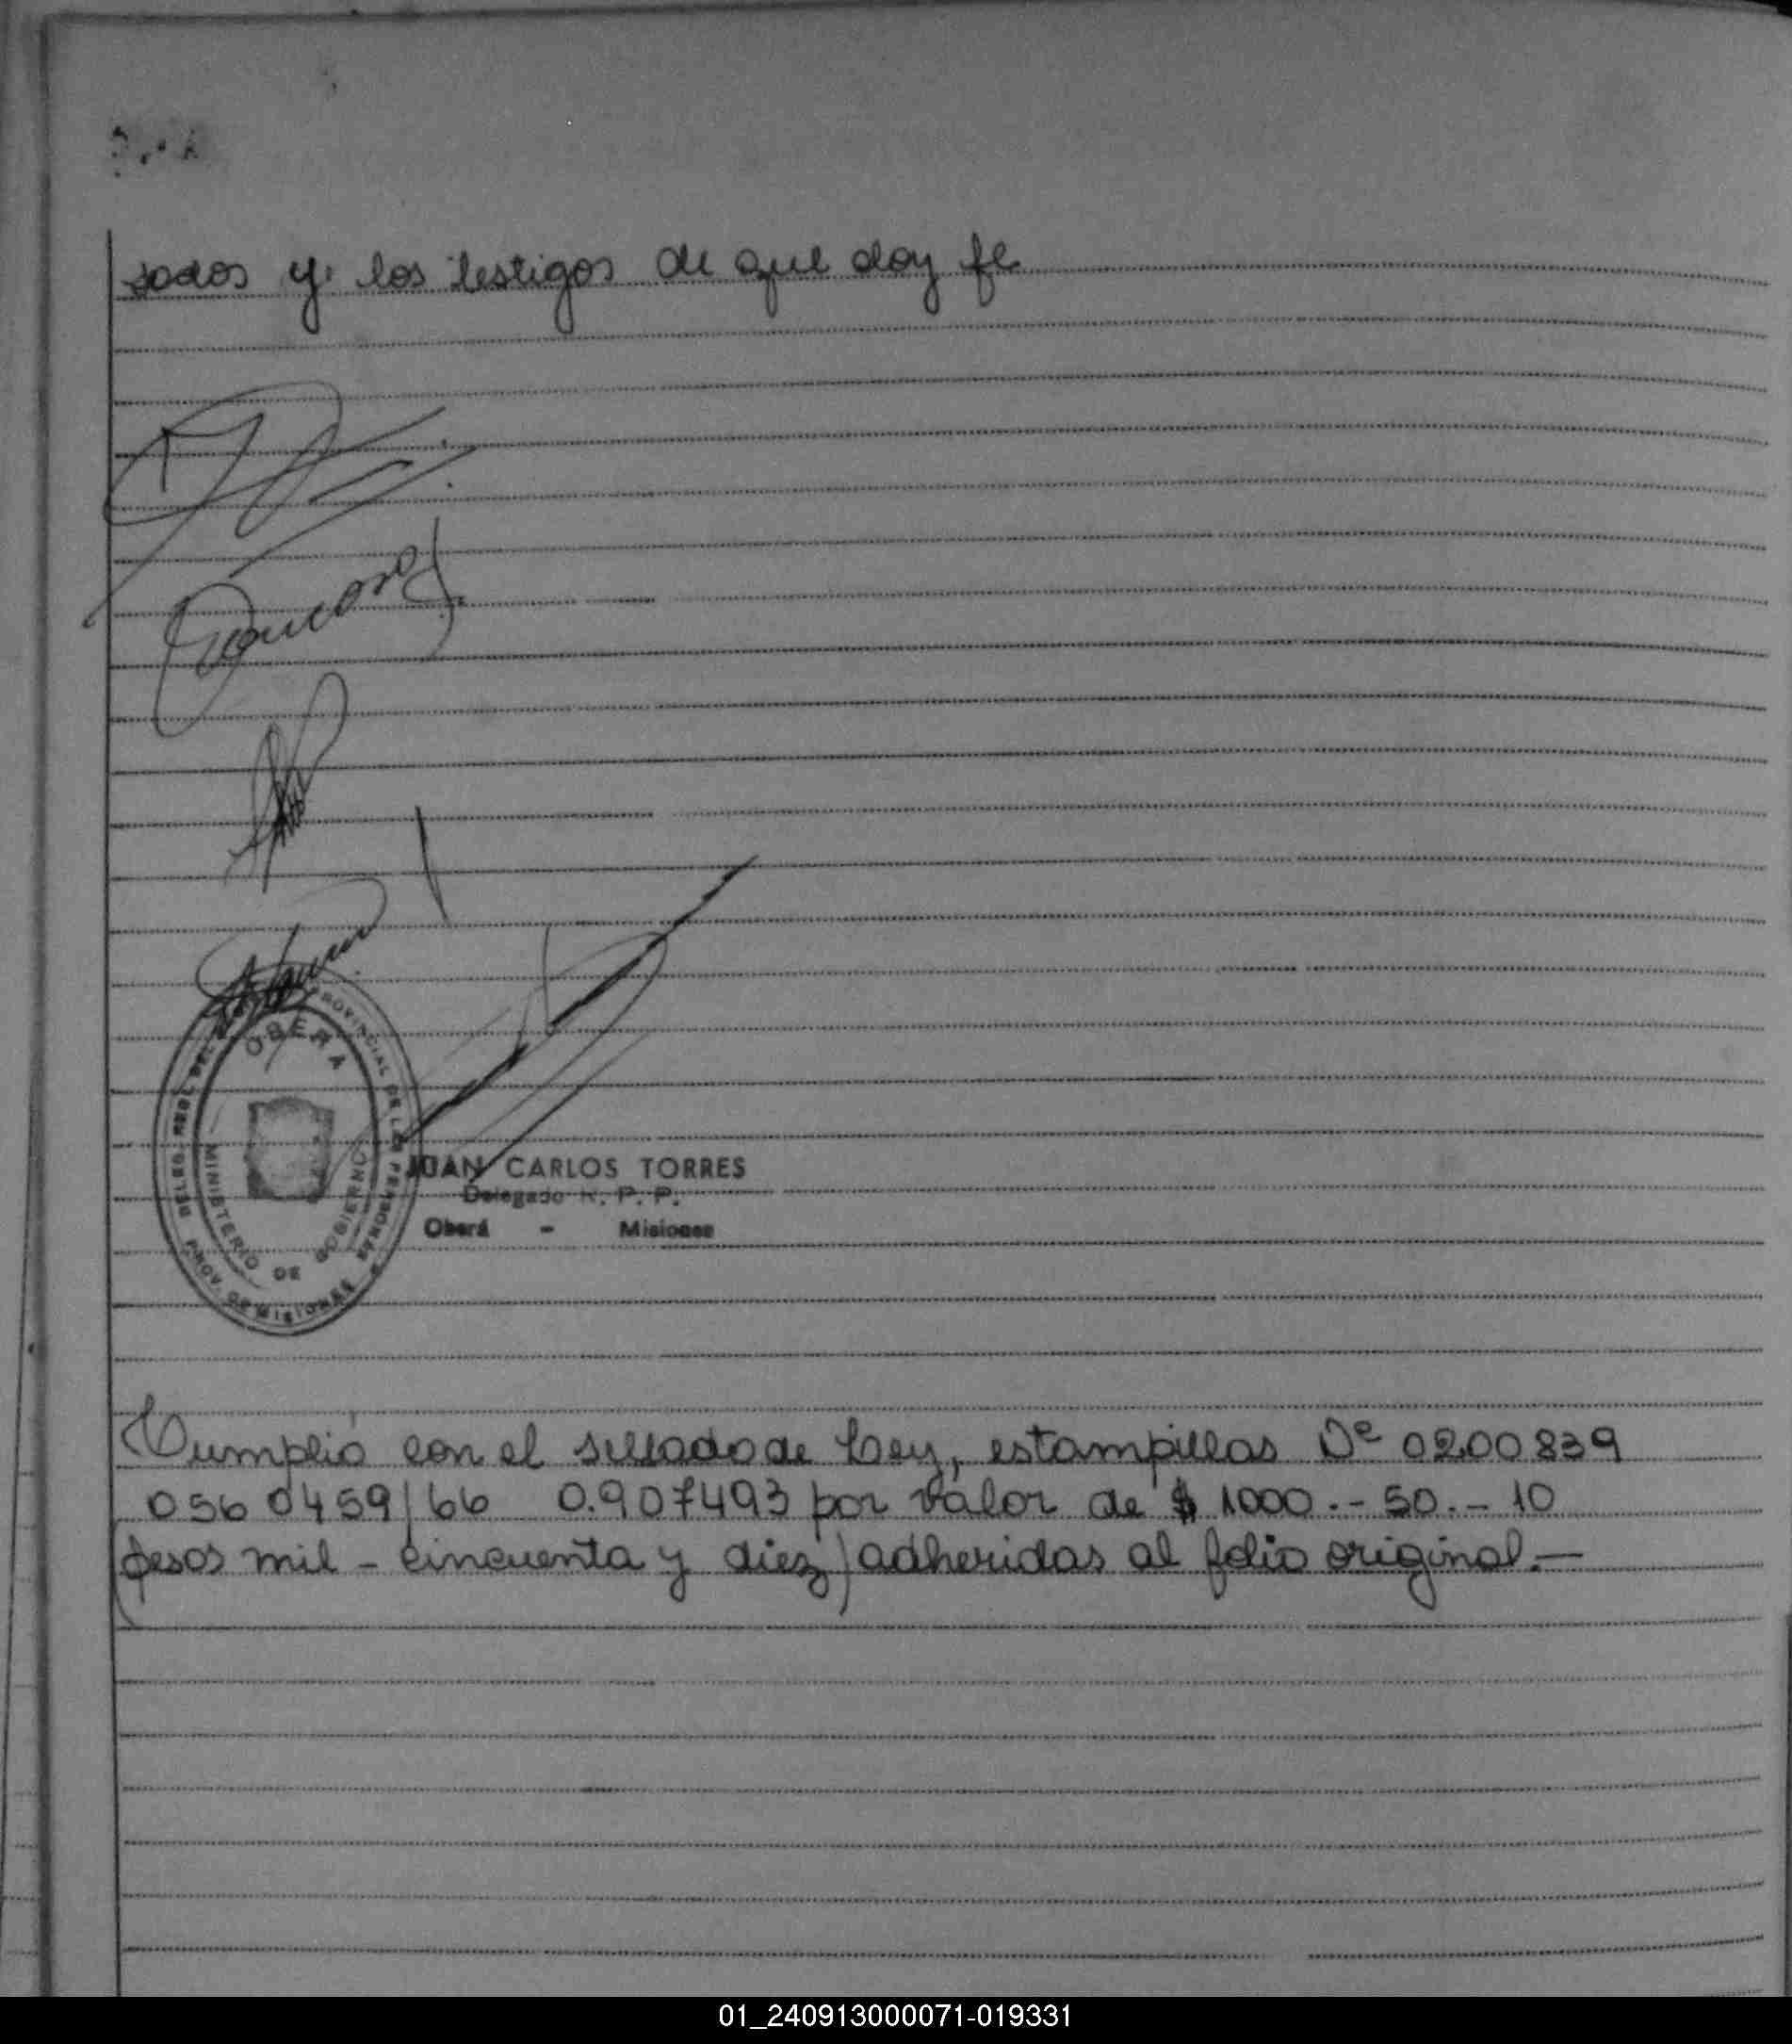 sados y los testigos de que doy fe
OBERA
PROVINCIAL DE LAS PERSONAS
DELEG. REGL. DEL
MINISTERIO DE GOBIERNO
PROV. DE MISIONES
JUAN CARLOS TORRES
Delegado R. P. P.
Oberá - Misiones
Cumplió con el sellado de Ley, estampillas Nº 0200839
0560459/66 0.907493 por valor de $ 1000.-- 50.- 10
(pesos mil - cincuenta y diez) adheridas al folio original.—
01_240913000071-019331